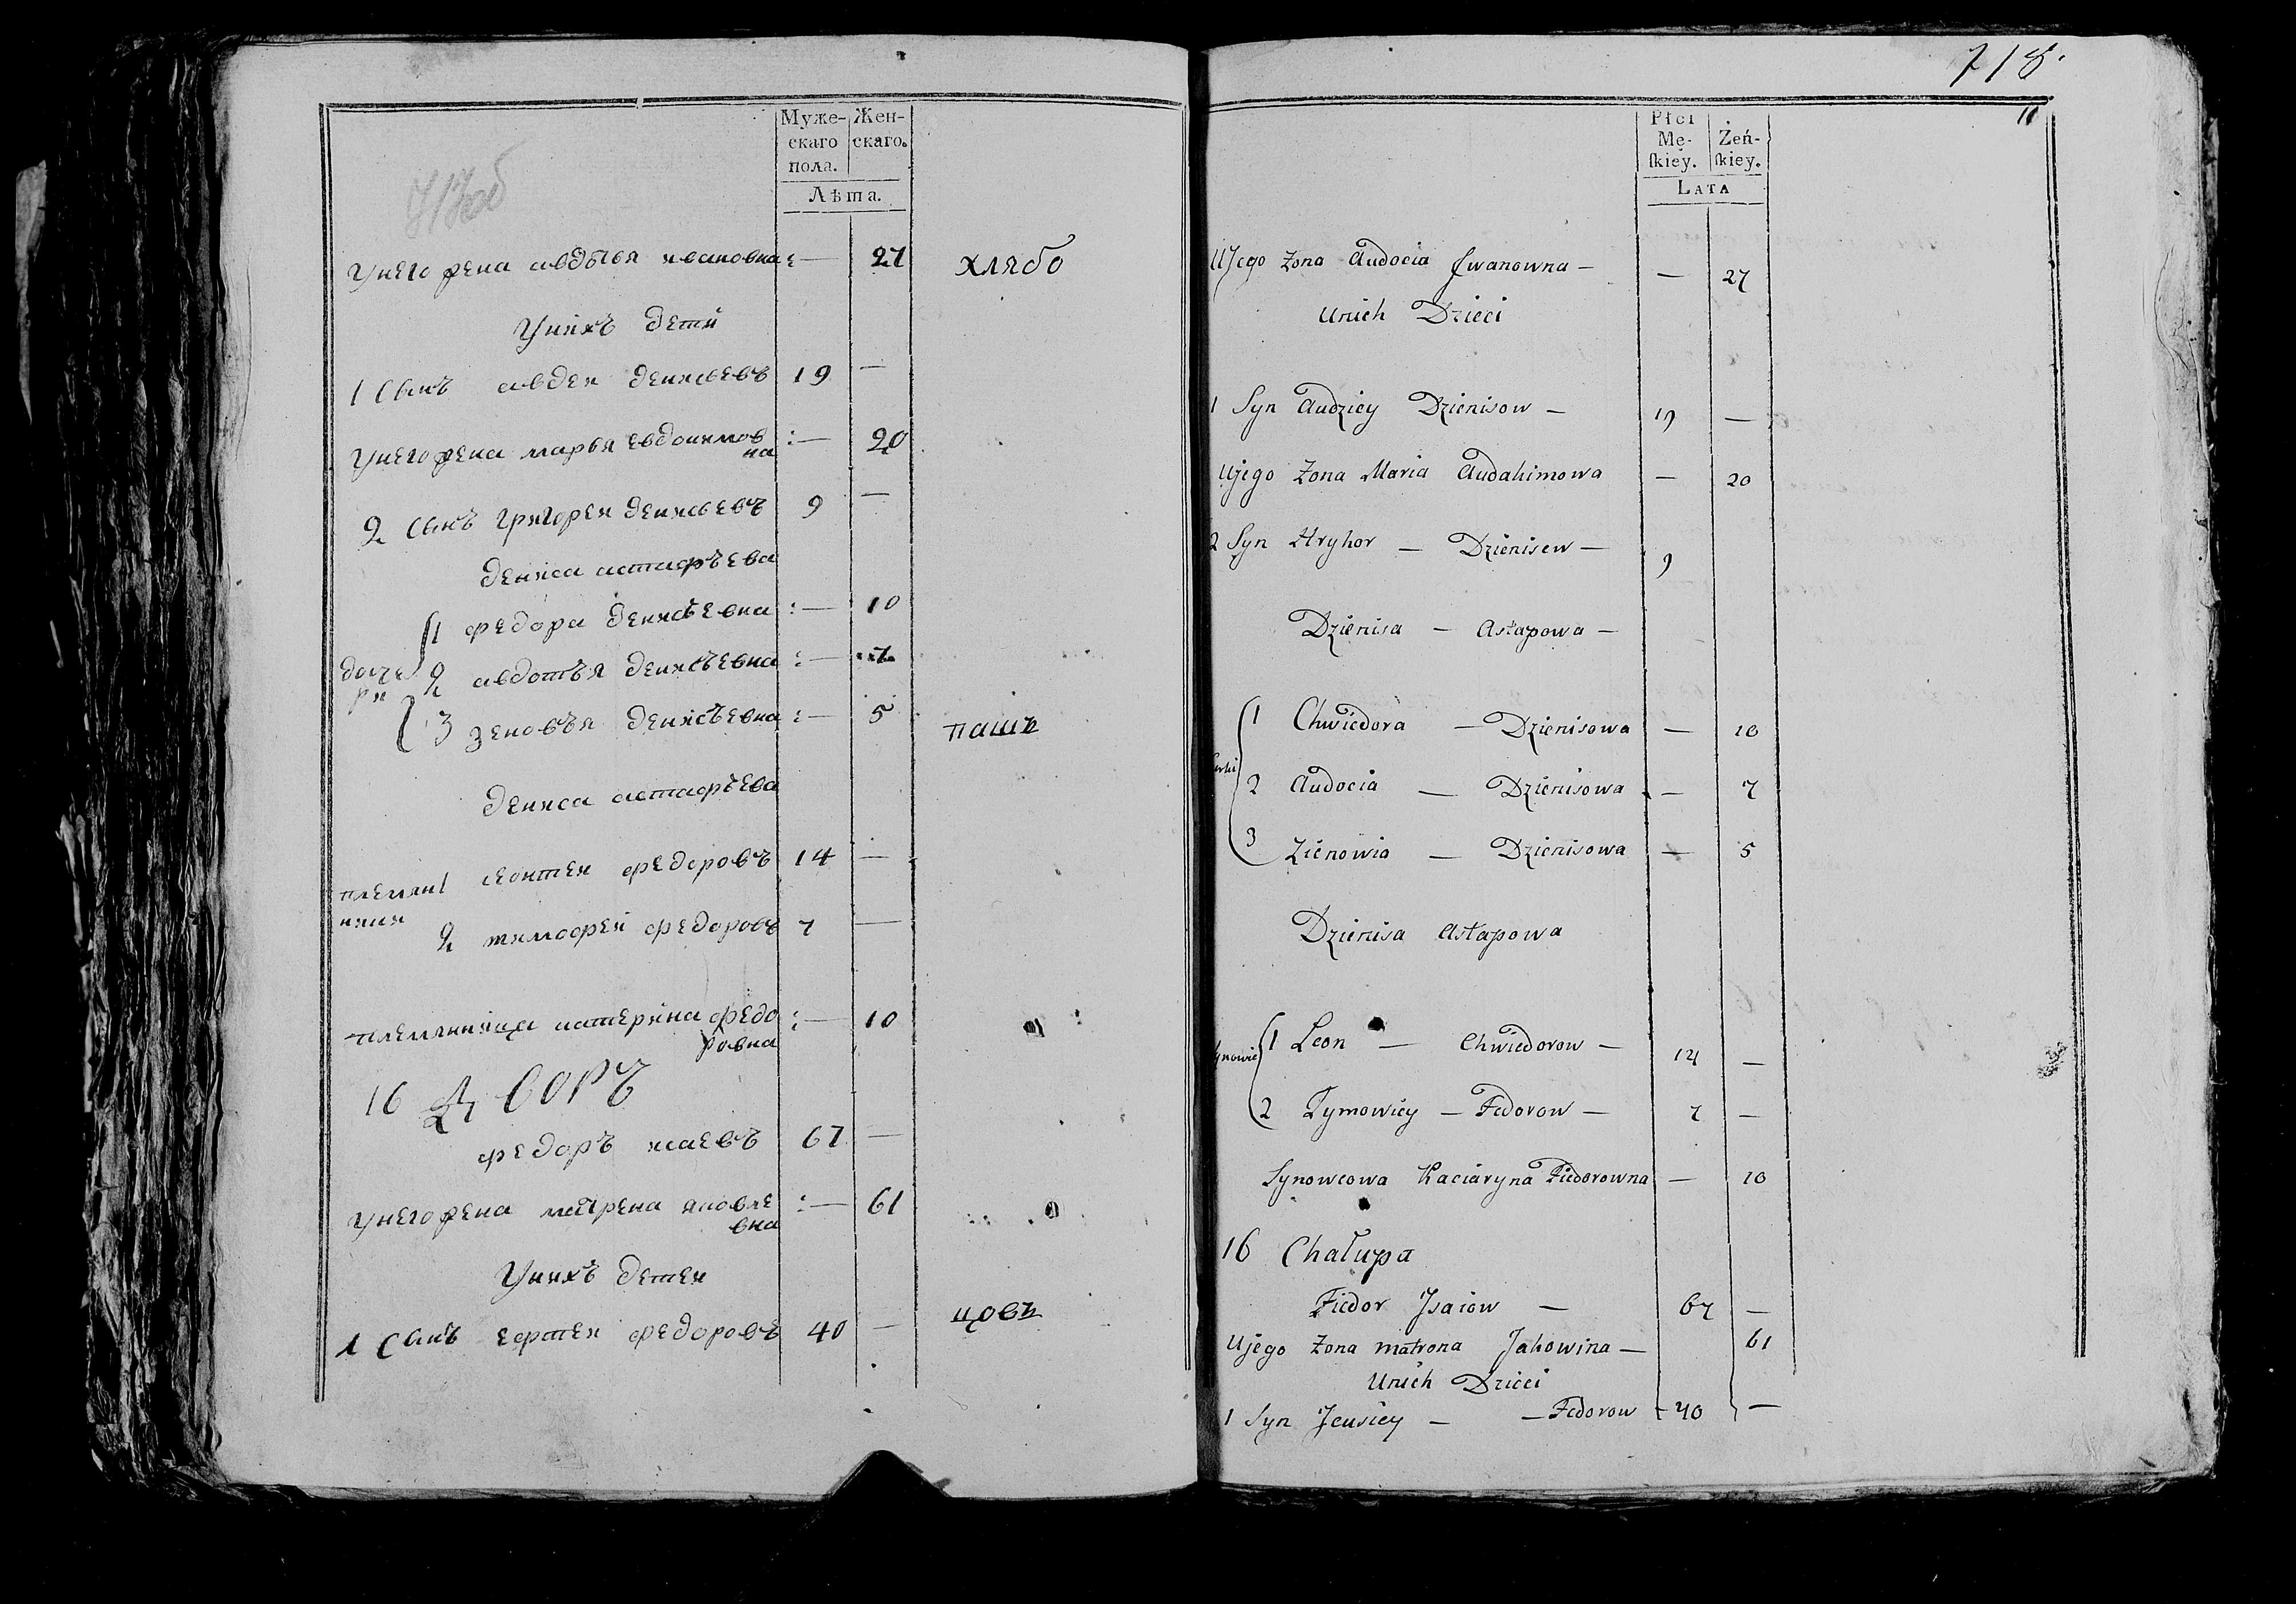 717об
Муже-
скаго
пола.
Жен-
скаго.
Лѣта.
Унего жена авдотья ивановна :— 27 хлябо
Унихъ дети
1 Сынъ авдеи денисьевъ 19 —
Унего жена марья евдокимов
на :— 20
2 Сынъ григореи денисьевъ 9 —
дениса астафъева
1 федора денисъевна :— 10
доче
ри 2 авдотъя денисъевна :— 7
3 зеновъя денисъевна :— 5 пашъ
дениса астафъева
племян 1 леонтеи федоровъ 14 —
ники
2 тимофеи федоровъ 7 —
племянница катерина федо
ровна :— 10
16 Дворъ
федоръ исаевъ 67 —
Унего жена матрена яковле
вна :— 61
Унихъ детеи
1 Сынъ евтеи федоровъ 40 — цовъ
718.
11
Płci
Mę-
ſkiey.
Żeń-
ſkiey.
LATA
Ujego Zona Audocia Iwanowna — — 27
Unich Dzieci
1 Syn Audziey Dzienisow — 19 —
Ujego Zona Maria Audakimowa — 20
2 Syn Hryhor — Dzienisew — 9
Dzienisa — Astapowa —
1 Chwiedora — Dzienisowa — 10
2 Audocia — Dzienisowa — 7
3 Zienowia — Dzienisowa — 5
Dzienisa Astapowa
1 Leon — Chwiedorow — 14 —
2 Tymowiey — Fedorow — 7 —
Synowcowa Kaciaryna Fiedorowna — 10
16 Chałupa
Fiedor Isaiow — 67 —
Ujego Zona matrona Jakowina — 61
Unich Dzieci
1 Syn Jeusiey — — Fedorow — 40 —